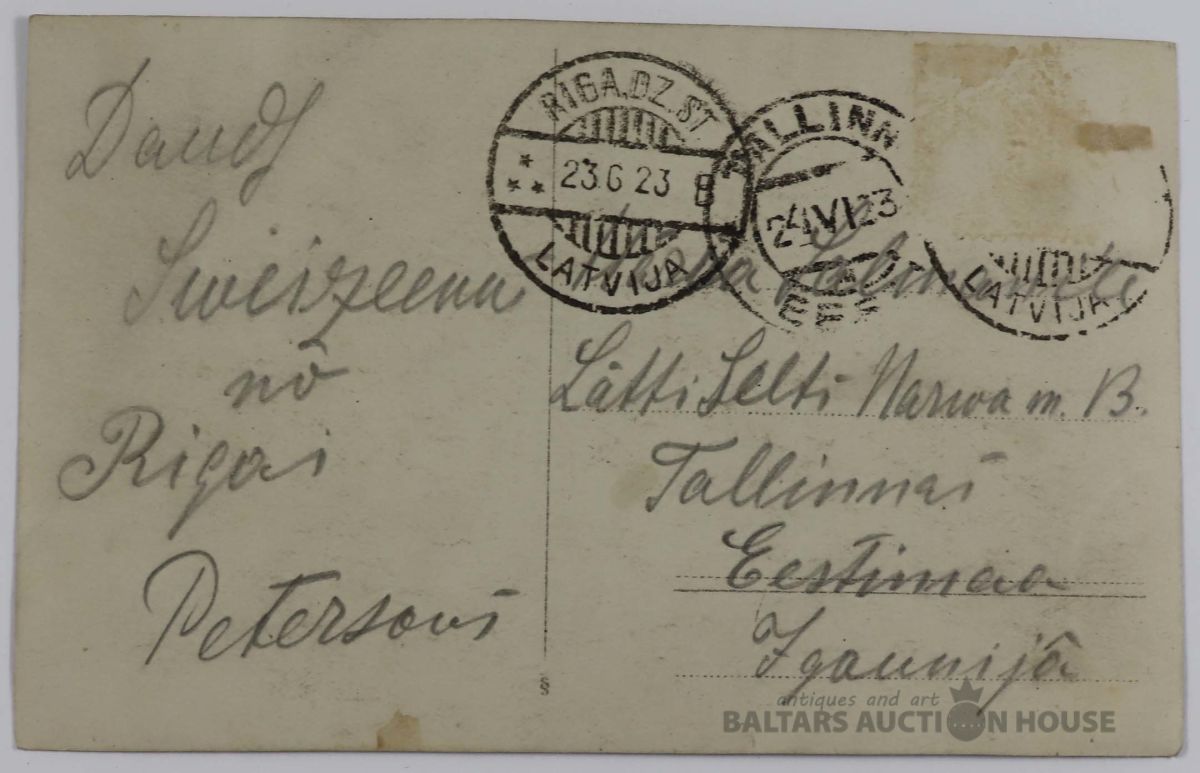 Daudz
Sweizeenu
no
Rigas
Petersons
RIGA.DZ.ST
23.6 23 B
LATVIJA
TALLINN
24 VI 23
EESTI
LATVIJA
Lätti Selts Narwa m. B.
Tallinnas
Eestimaa
Igaunijâ
§
antiques and art
BALTARS AUCTION HOUSE